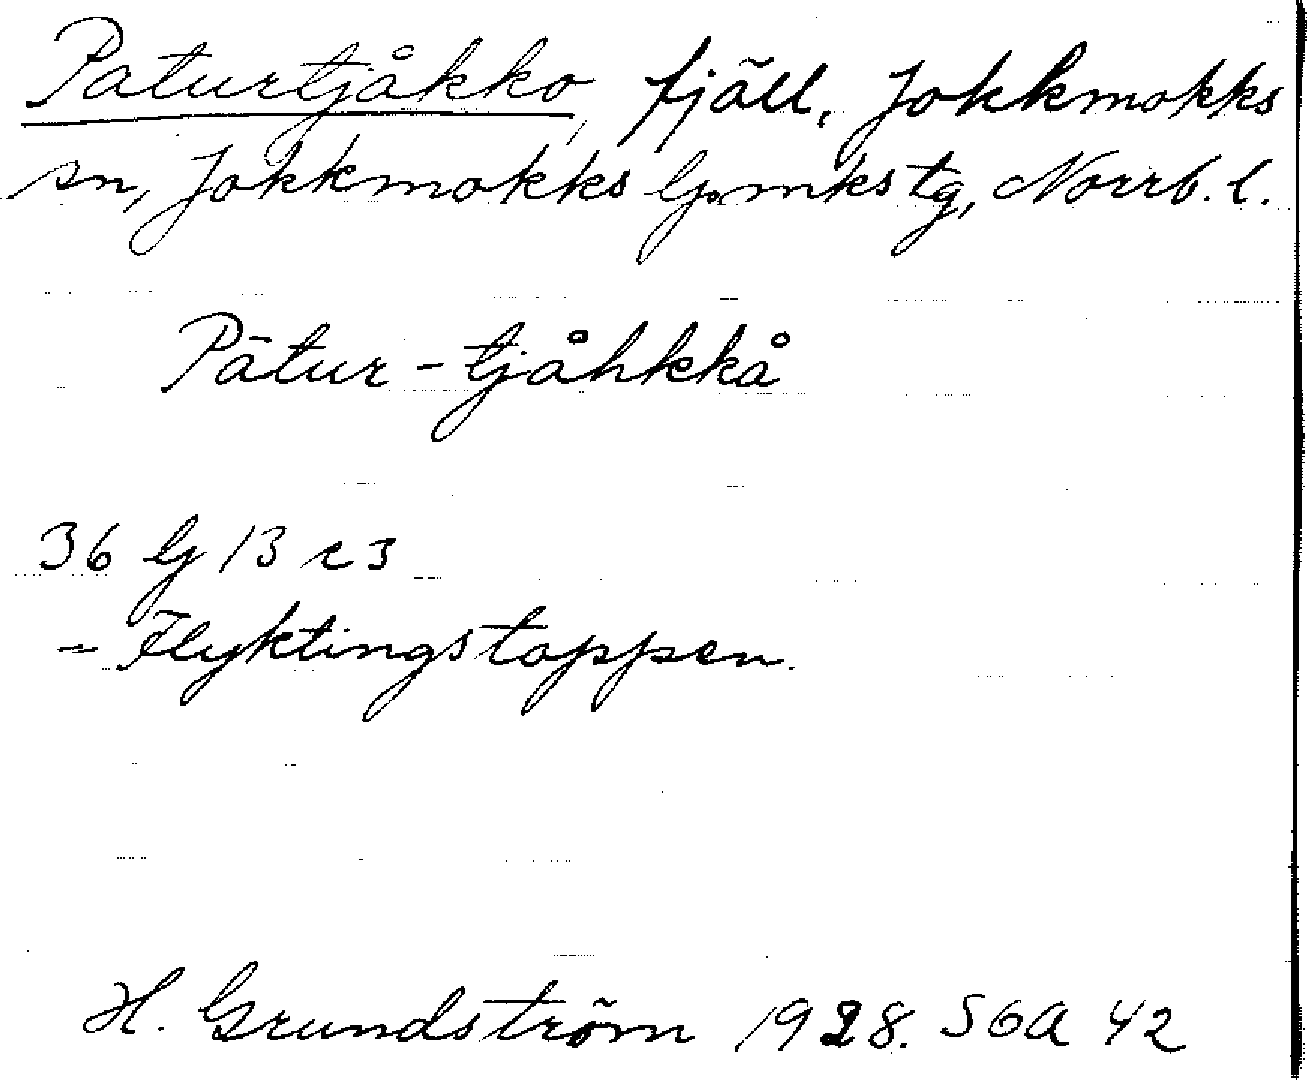 Paturtjåkko, fjäll, Jokkmokks
sn, Jokkmokks lpmkstg, Norrb. l.
Pātur-tjåhkkå
36 G 13 c 3
= Flyktingstoppen.
H. Grundström 1928. SGA 42